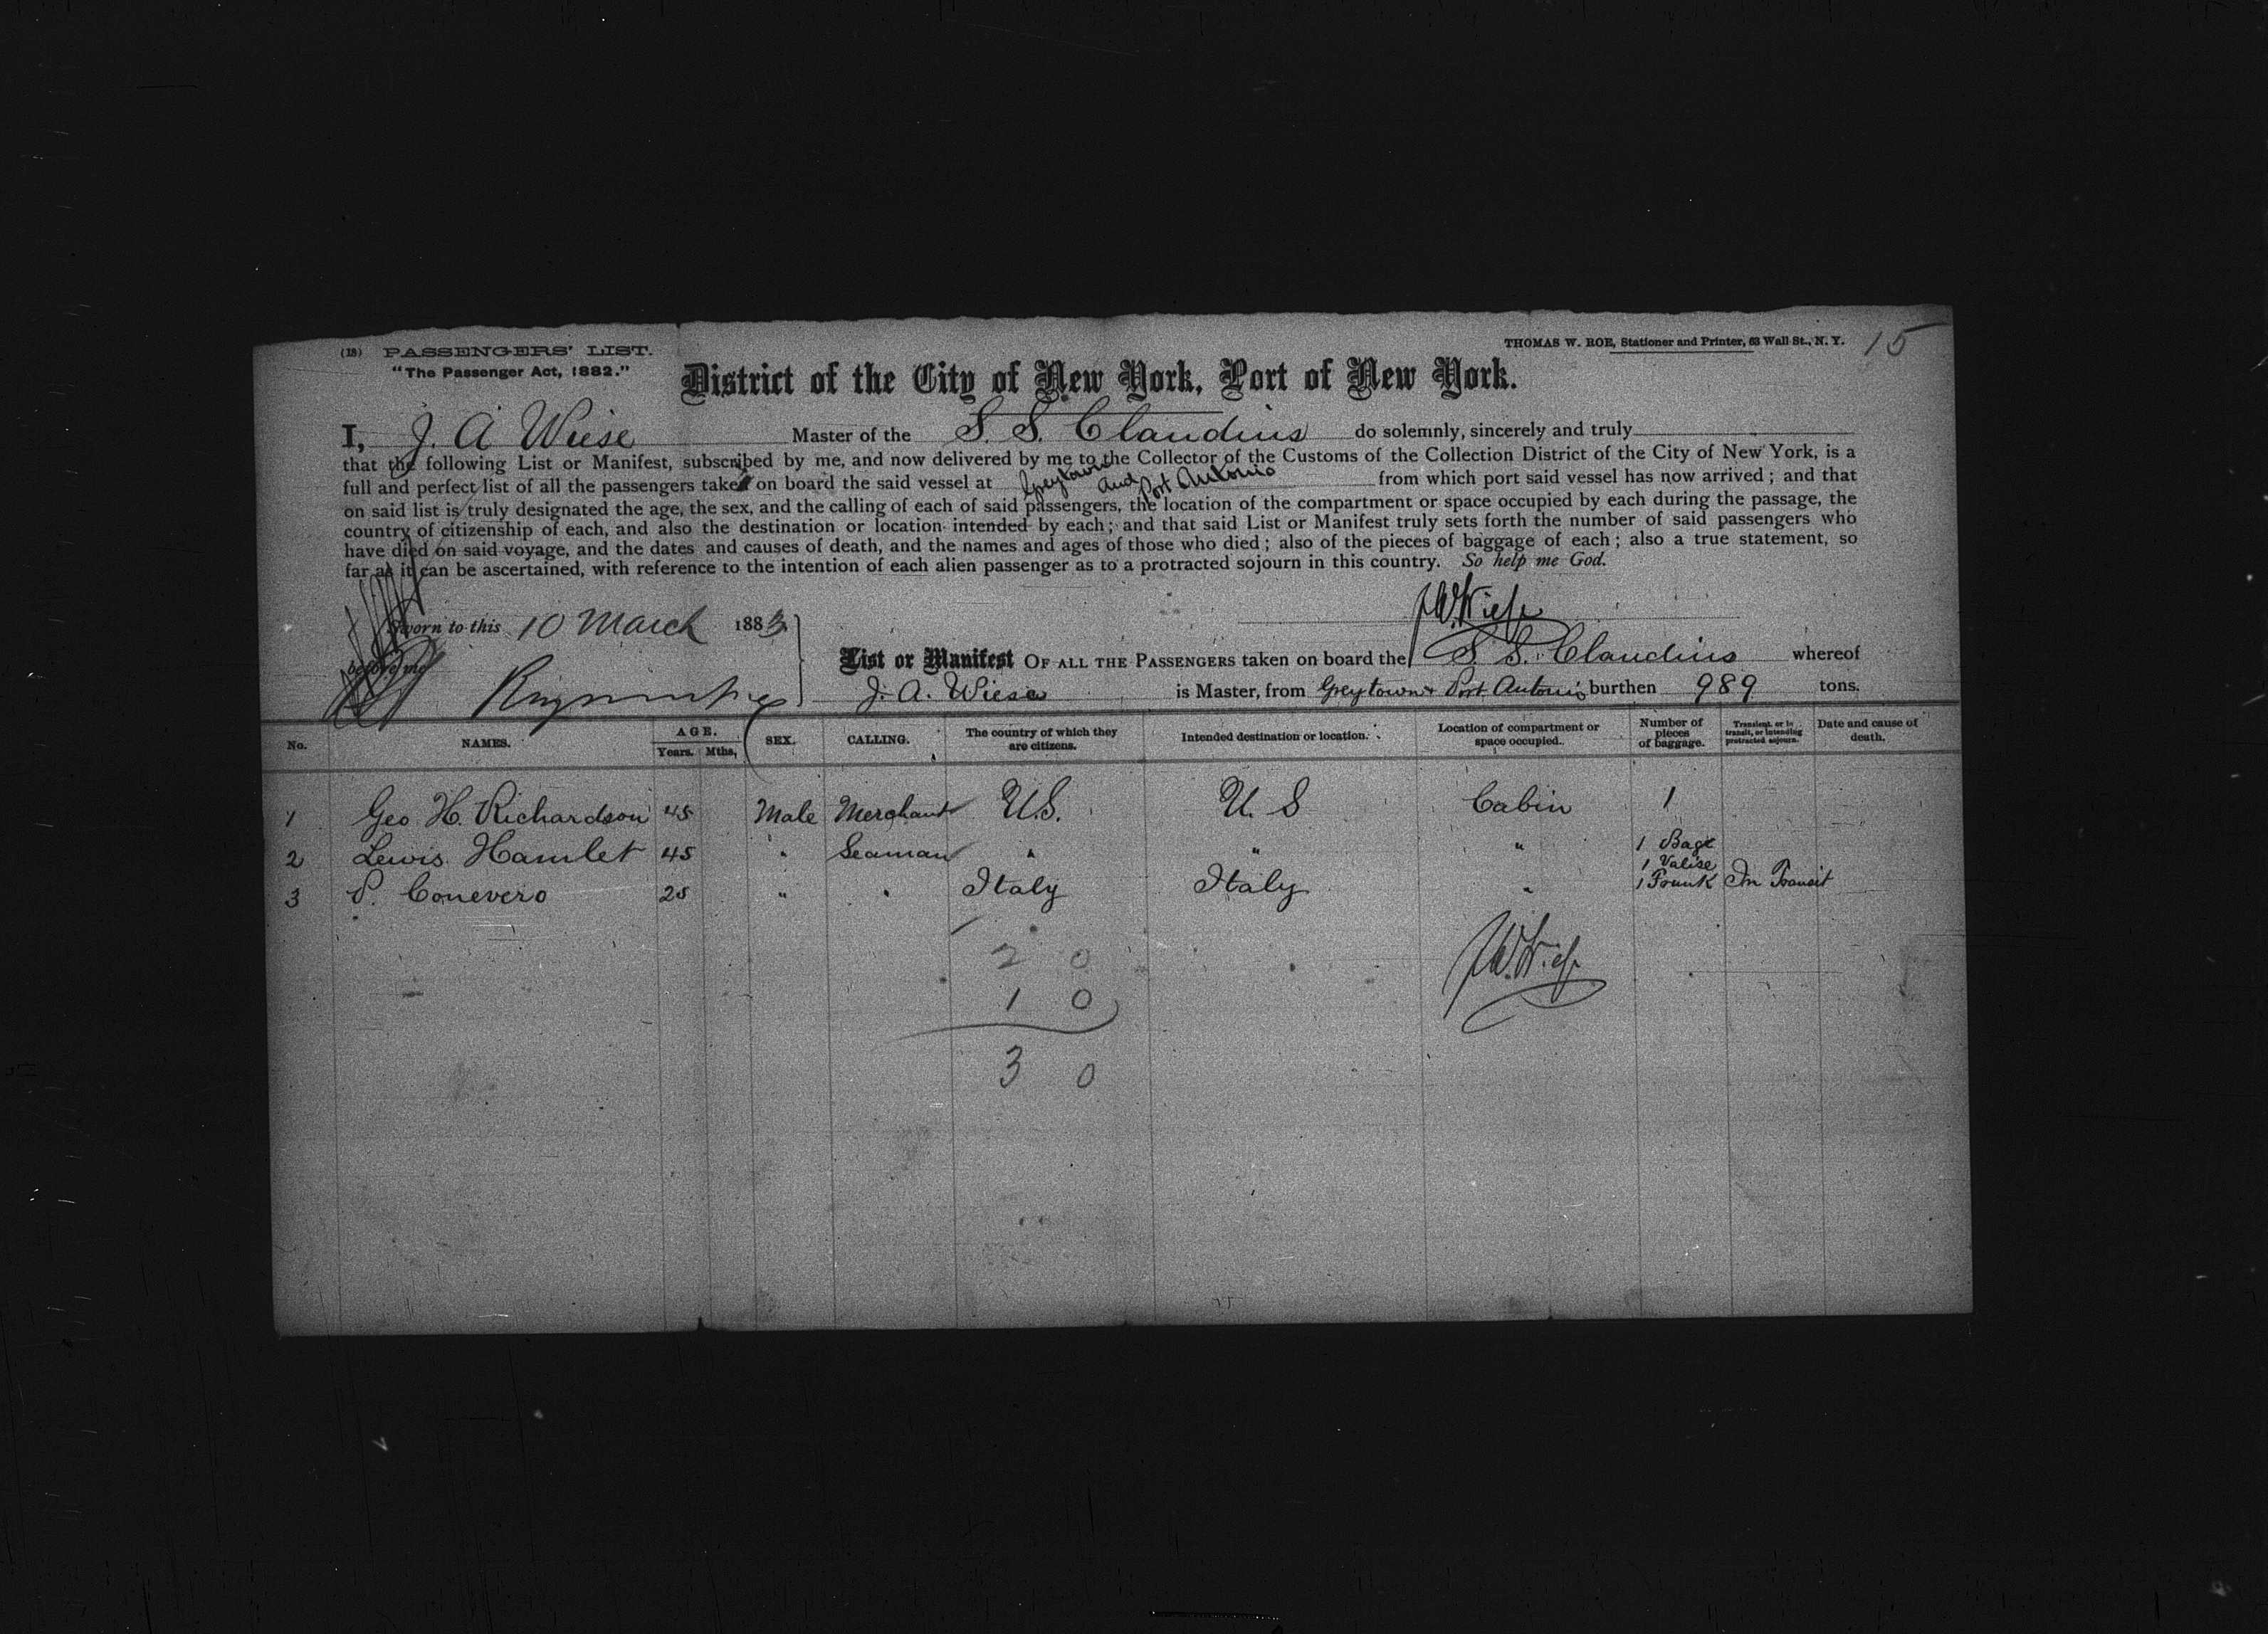 (18) PASSENGERS' LIST.
"The Passenger Act, 1882."
THOMAS W. ROE, Stationer and Printer, 63 Wall St., N. Y.
15
District of the City of New York, Port of New York.
I, J. A Wiese Master of the S. S. Claudius do solemnly, sincerely and truly
that the following List or Manifest, subscribed by me, and now delivered by me to the Collector of the Customs of the Collection District of the City of New York, is a
full and perfect list of all the passengers taken on board the said vessel at Greytown and Port Antonio from which port said vessel has now arrived; and that
on said list is truly designated the age, the sex, and the calling of each of said passengers, the location of the compartment or space occupied by each during the passage, the
country of citizenship of each, and also the destination or location intended by each; and that said List or Manifest truly sets forth the number of said passengers who
have died on said voyage, and the dates and causes of death, and the names and ages of those who died; also of the pieces of baggage of each; also a true statement, so
far as it can be ascertained, with reference to the intention of each alien passenger as to a protracted sojourn in this country. So help me God.
Sworn to this 10 March 1883
before me
List or Manifest OF ALL THE PASSENGERS taken on board the S. S. Claudius whereof
J. A. Wiese is Master, from Greytown & Port Antonio burthen 989 tons.
No. NAMES. AGE. Years. Mths. SEX. CALLING. The country of which they are citizens. Intended destination or location. Location of compartment or space occupied. Number of pieces of baggage. Transient, or in transit, or intending protracted sojourn. Date and cause of death.
1 Geo H. Richardson 45 Male Merchant U.S. U. S Cabin 1
2 Lewis Hamlet 45 " Seaman " " " 1 Bage
1 Valise
3 P. Conevero 25 " " Italy Italy " 1 Trunk In Transit
2 0
1 0
3 0